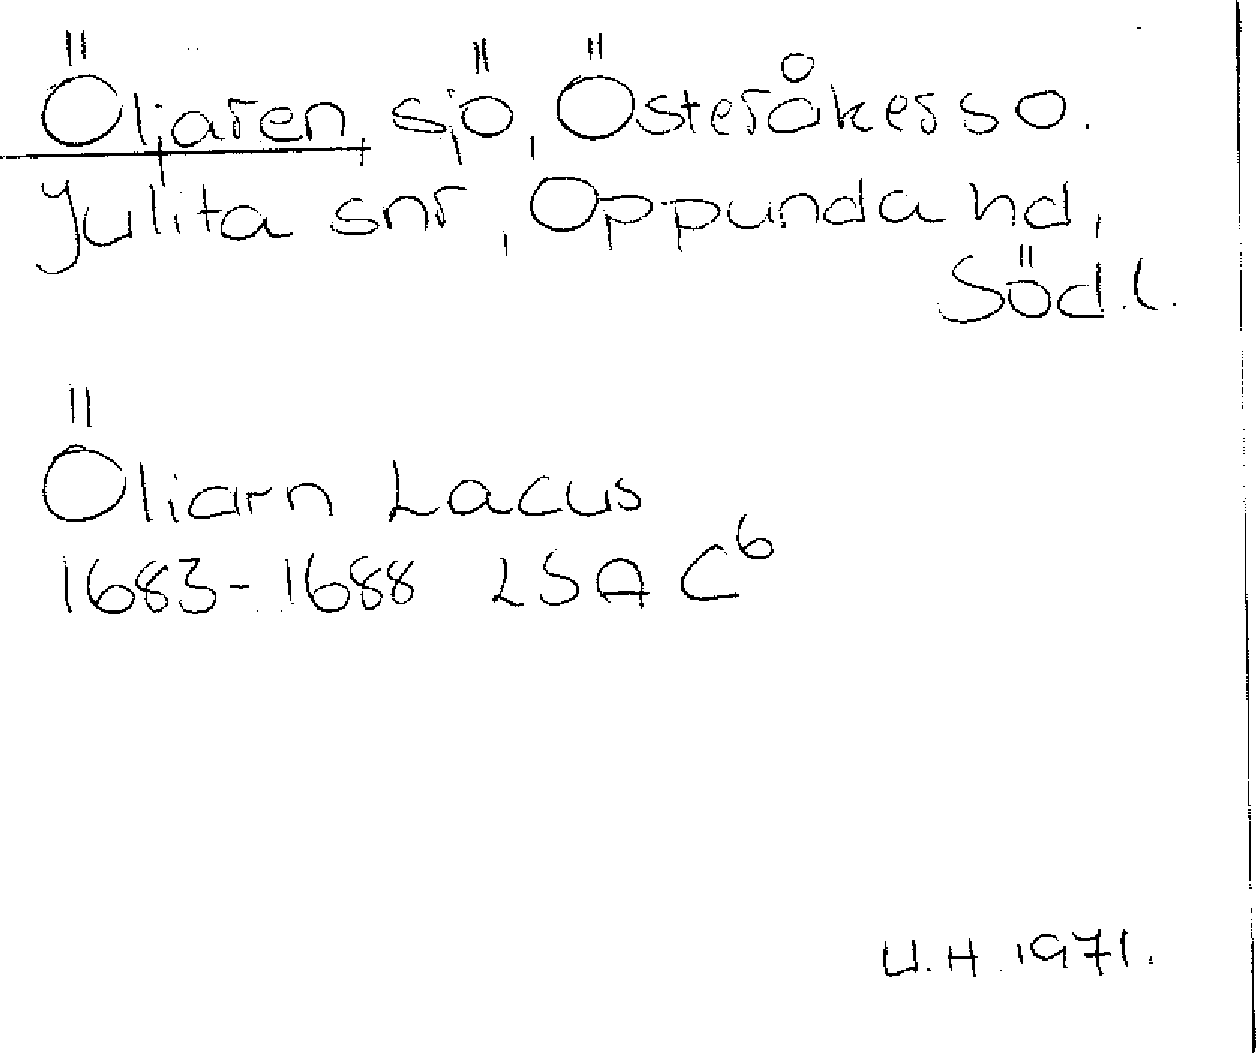 Öljaren, sjö, Österåkers o.
Julita snr, Oppunda hd,
Söd.l.
Öliarn Lacus
1683-1688 LSA C6
U.H. 1971.